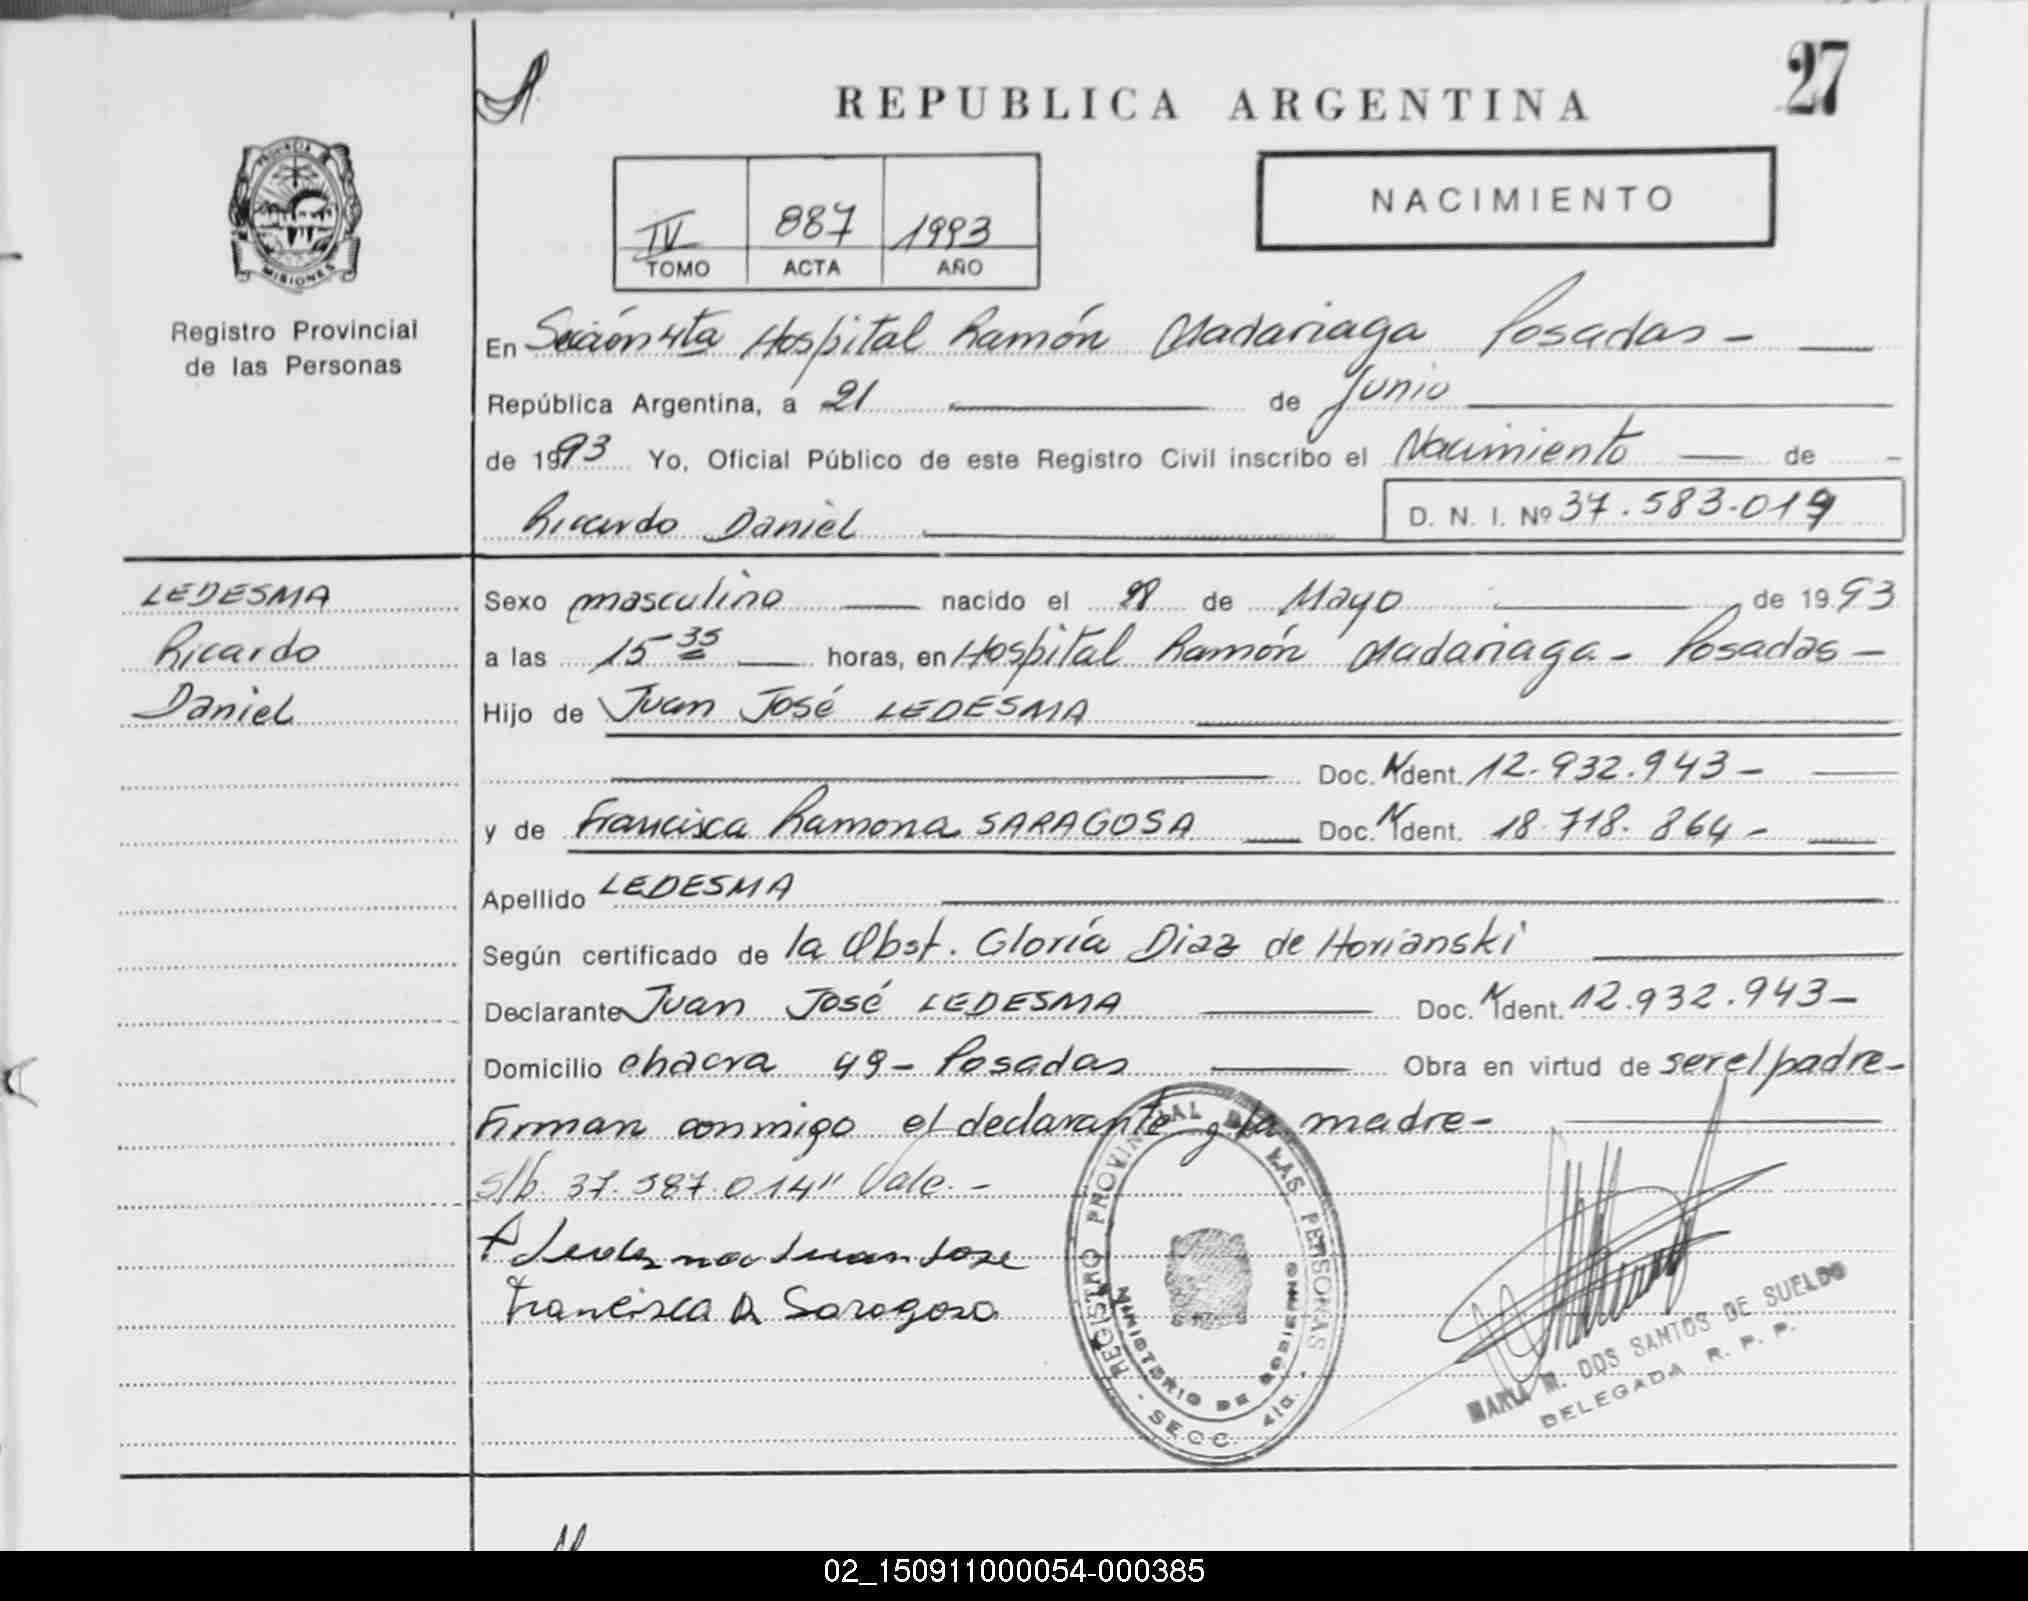 27
REPUBLICA ARGENTINA
NACIMIENTO
PROVINCIA
MISIONES
Registro Provincial
de las Personas
IV 887 1993
TOMO ACTA AÑO
En Sección 4ta Hospital Ramón Madariaga Posadas -
República Argentina, a 21 de Junio
de 1993 Yo, Oficial Público de este Registro Civil inscribo el Nacimiento de
Ricardo Daniel D. N. I. Nº 37.583.019
LEDESMA
Ricardo
Daniel
Sexo masculino nacido el de Mayo de 1993
a las 15 35 horas, en Hospital Ramón Madariaga - Posadas -
Hijo de Juan José LEDESMA
Doc. Ident. 12.932.943 -
y de Francisca Ramona SARAGOSA Doc. Ident. 18.718.864 -
Apellido LEDESMA
Según certificado de la Obst. Gloria Diaz de Horianski
Declarante Juan José LEDESMA Doc. Ident. 12.932.943 -
Domicilio chacra 49 - Posadas Obra en virtud de ser el padre -
Firman conmigo el declarante y la madre -
s/b. 37.587.014" Vale. -
Francisca R Saragosa
REGISTRO PROVINCIAL DE LAS PERSONAS
MINISTERIO DE GOBIERNO
- SECC. 4ta. -
MARIA M. DOS SANTOS DE SUELDO
DELEGADA R. P. P.
02_150911000054-000385